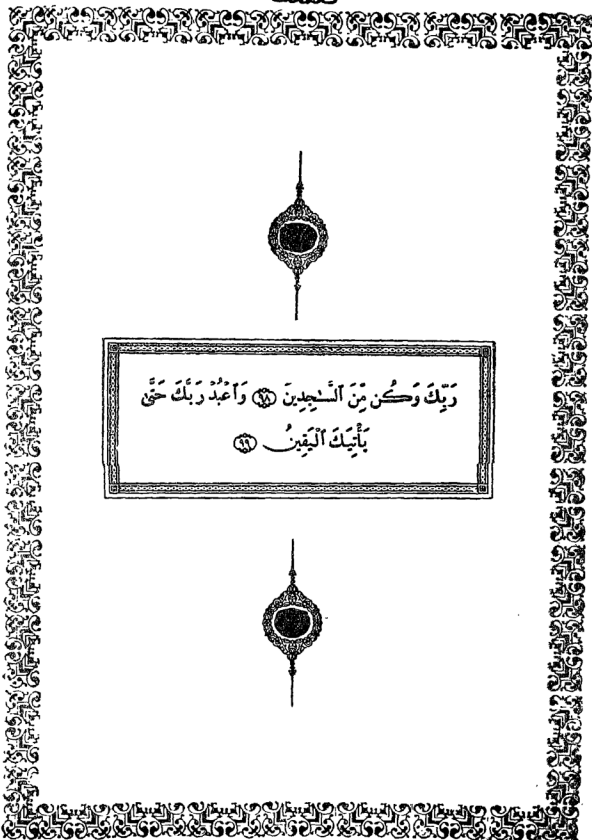 رَبِّكَ وَكُن مِّنَ ٱلسَّٰجِدِينَ ٩٨ وَٱعۡبُدۡ رَبَّكَ حَتَّىٰ
يَأۡتِيَكَ ٱلۡيَقِينُ ٩٩